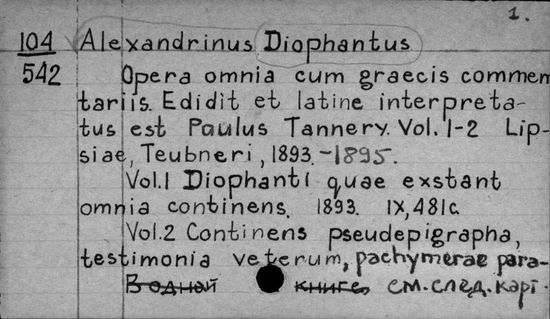 1.
104 Alexandrinus Diophantus
542 Opera omnia cum graecis commen
tariis. Edidit et latine interpreta-
tus est Paulus Tannery. Vol. 1-2 Lip-
siae, Teubneri, 1893.-1895.
Vol.1 Diophanti quae exstant
omnia continens. 1893. IX,481c.
Vol.2 Continens pseudepigrapha,
testimonia veterum, pachymerae para-
В одной книге, см. след. карт.